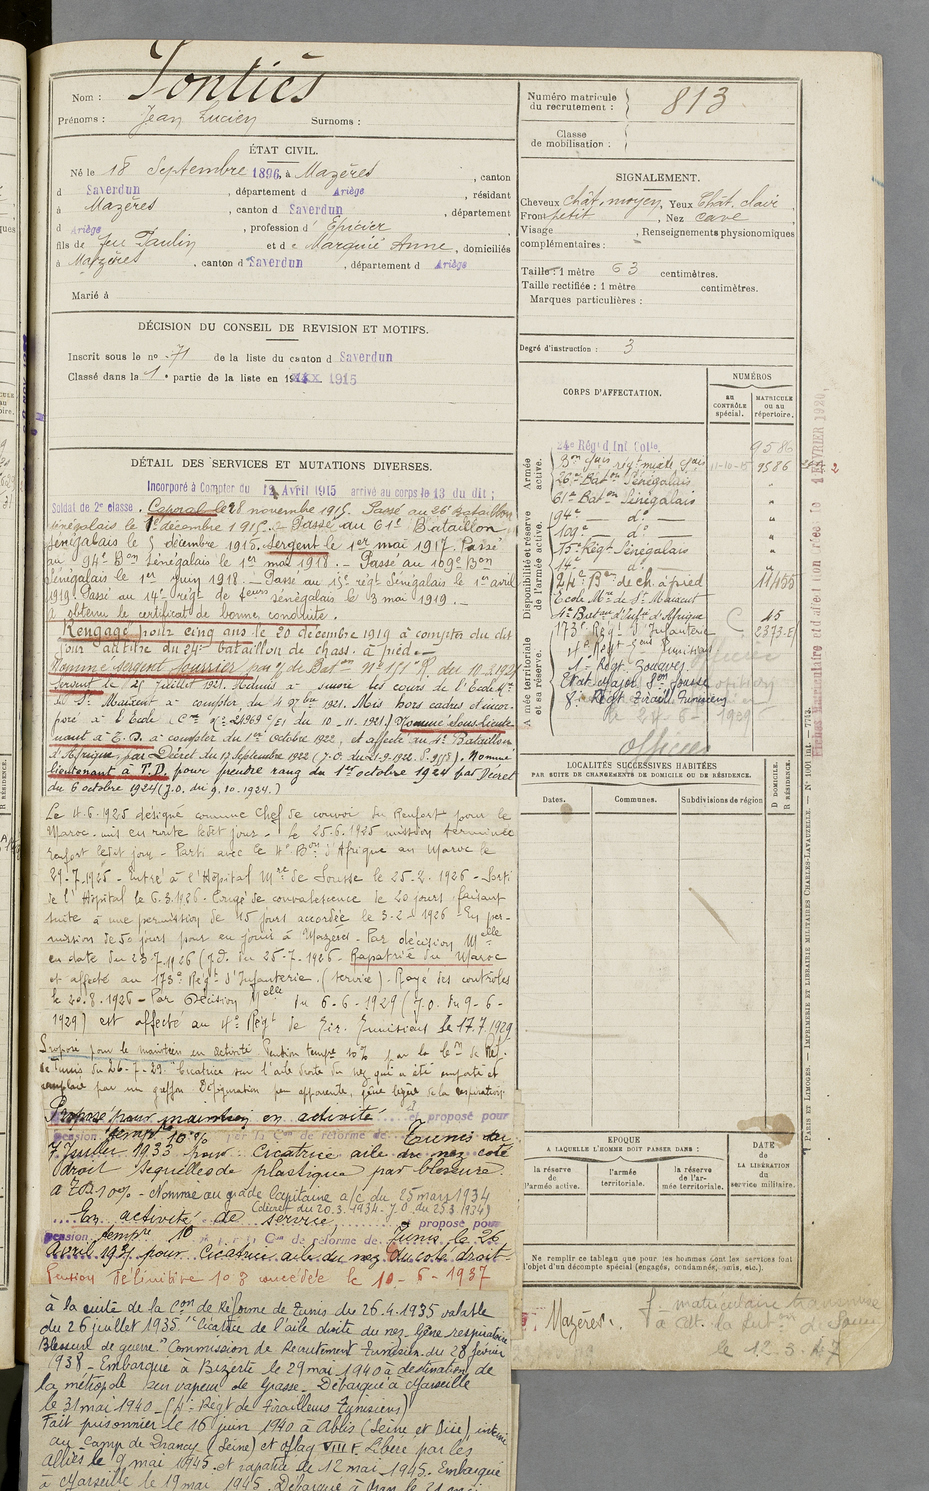 Nom : Pontiès
Prénoms : Jean Lucien Surnoms :
ÉTAT CIVIL.
Né le 18 Septembre 1896, à Mazères, canton
d Saverdun, département d Ariège, résidant
à Mazères, canton d Saverdun, département
d Ariège, profession d' Epicier
fils de feu Paulin et de Marquié Anne, domiciliés
à Mazères, canton d Saverdun, département d Ariège
Marié à
DÉCISION DU CONSEIL DE REVISION ET MOTIFS.
Inscrit sous le no 71 de la liste du canton d Saverdun
Classé dans la 1e partie de la liste en 1915
DÉTAIL DES SERVICES ET MUTATIONS DIVERSES.
Incorporé à Compter du 12 Avril 1915 arrivé au corps le 13 du dit ;
Soldat de 2e classe. Caporal le 28 novembre 1915. Passé au 26e Bataillon
sénégalais le 1er décembre 1915. Passé au 61e Bataillon
Sénégalais le 5 décembre 1916. Sergent le 1er mai 1917. Passé
au 94e Bon Sénégalais le 1er mai 1918. — Passé au 109e Bon
Sénégalais le 1er juin 1918. — Passé au 15e régt Sénégalais le 1er avril
1919. Passé au 14e régt de sénégalais le 3 mai 1919. —
a obtenu le certificat de bonne conduite.
Rengagé pour cinq ans le 20 décembre 1919 à compter du dit
jour au titre du 24e bataillon de chass. à pied —
Nommé sergent fourrier
le 25 Juillet 1921. Admis à suivre les cours de l'Ecole Mre
de St Maixent à compter du 4 9bre 1921. Mis hors cadres et incor-
poré à l'Ecole (Cre No 21969 du 10-11-1921) Nommé sous-lieute
nant à T.D. à compter du 1er Octobre 1922, et affecté au 4e Bataillon
d'Afrique, par Décret du 17 Septembre 1922 (J.O. du 21-9-1922. P. ). Nommé
lieutenant à T.D. pour prendre rang du 1er octobre 1924 par Décret
du 6 octobre 1924 (J.O. du 9.10.1924.)
Le 4-6-1925 désigné comme Chef de convoi du Renfort pour le
Maroc mis en route ledit jour. Le 25-6-1925 mission terminée
renfort ledit jour - Parti avec le 4e Bon d'Afrique au Maroc le
29-7-1925 - entré à l'Hôpital Mre de Sousse le 25-2-1926 - Sorti
de l'Hôpital le 6.3.1926. Congé de convalescence de 20 jours faisant
suite à une permission de 15 jours accordée le 3-2-1926 En per-
mission de 50 jours pour en jouir à Mazères - Par décision Melle
en date du 23-7-1926 (J.O. du 25-7-1926 - Rapatrié du Maroc
et affecté au 173e Régt d'Infanterie. (service). Rayé des contrôles
le 20.8.1926 - Par Décision Melle du 6-6-1929 (J.O. du 9-6-
1929) est affecté au 4e Régt de Tir. Tunisiens le 17.7.1929
Proposé pour le maintien en activité Pension tempre 10% par la Con de Réf.
de Tunis du 26-7-29. Cicatrice sur l'aile droite du nez qui a été emportée et
remplacée par un greffon Défiguration peu apparente, gêne légère de la respiration
Proposé pour maintien en activité et proposé pour
pension tempre 10% par la Con de réforme de Tunis du
7 Juillet 1933 pour Cicatrice aile du nez côté
droit Séquelles de plastique par blessure.
10% - Nommé au grade Capitaine a/c du 25 mars 1934
(décret du 20.3.1934 - J.O du 25.3.1934)
En activité de service, et proposé pour
pension tempre 10 par la Con de réforme de Tunis le 26
Avril 1935 pour Cicatrice aile du nez du coté droit
Pension Définitive 10% concédée le 10-6-1937
à la suite de la Con de Réforme de Tunis du 26.4.1935 valable
du 26 juillet 1935 "Cicatrice de l'aile droite du nez. Gêne respiratoire
Blessure de guerre. Commission de Recrutement Tunisien du 28 février
1938 - Embarqué à Bizerte le 29 mai 1940 à destination de
la métropole sur vapeur de Grasse. Débarqué à Marseille
le 31 mai 1940 - (4e Régt de Tirailleurs Tunisiens)
Fait prisonnier le 16 juin 1940 à Ablis (Seine et Oise) interné
au camp de Drancy (Seine) et oflag VIII F. Libéré par les
Alliés le 9 mai 1945 et rapatrié le 12 mai 1945. Embarqué
à Marseille le 19 mai 1945. Débarqué à Oran le 21 mai
Numéro matricule du recrutement : 813
Classe de mobilisation :
SIGNALEMENT.
Cheveux chât. moyen, Yeux Chât. clair
Front petit, Nez cave
Visage , Renseignements physionomiques
complémentaires :
Taille : 1 mètre 63 centimètres.
Taille rectifiée : 1 mètre centimètres.
Marques particulières :
Degré d'instruction : 3
CORPS D'AFFECTATION.
NUMÉROS
AU CONTRÔLE spécial.
MATRICULE OU AU répertoire.
Armée active.
Disponibilité et réserve de l'armée active.
Armée territoriale et sa réserve.
24e Régt d'Inf Colle. 9586
11-10-15 9586
26e Baton Sénégalais "
61e Baton Sénégalais "
94e — do — "
109e — do — "
15e Régt Sénégalais "
14e — do — "
24e Bon de ch. à pied 11455
Ecole Mre de St Maixent
4e Baton d'Infie d'Afrique 45
173e Régt d'Infanterie C. 2373
4e Régt Tunisiens
Etat Major Son Sousse
8e Régt Tiraill. Tunisiens
officier
LOCALITÉS SUCCESSIVES HABITÉES
PAR SUITE DE CHANGEMENTS DE DOMICILE OU DE RÉSIDENCE.
Dates. Communes. Subdivisions de région
D DOMICILE.
R RÉSIDENCE.
EPOQUE
A LAQUELLE L'HOMME DOIT PASSER DANS :
la réserve de l'armée active.
l'armée territoriale.
la réserve de l'armée territoriale.
DATE de LA LIBÉRATION du service militaire.
Ne remplir ce tableau que pour les hommes dont les services font
l'objet d'un décompte spécial (engagés, condamnés, omis, etc.).
Mazères.
f. matriculaire transmise
à
le 12-3-47
PARIS ET LIMOGES. — IMPRIMERIE ET LIBRAIRIE MILITAIRES CHARLES-LAVAUZELLE. — No 1001 int. — 7743.